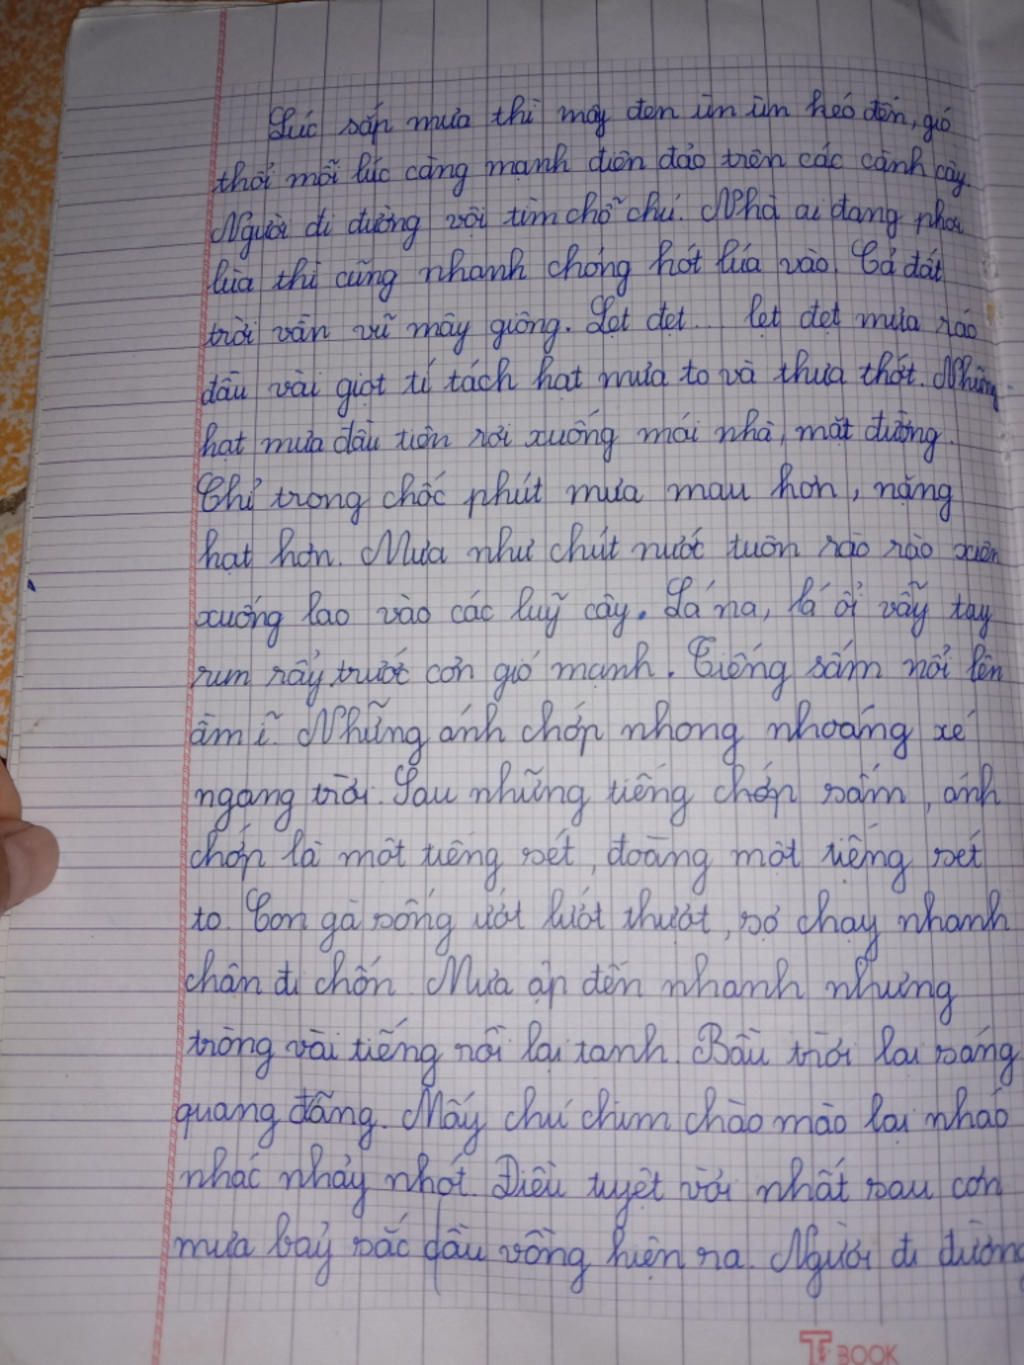 Lúc sắp mưa thì mây đen ùn ùn kéo đến, gió
thổi mỗi lúc càng mạnh điên đảo trên các cành cây.
Người đi đường vội tìm chỗ chú. Nhà ai đang phơi
lúa thì cũng nhanh chóng hót lúa vào. Cả đất
trời vần vũ mây giông. Lẹt đẹt... lẹt đẹt mưa ráo
đầu vài giọt tí tách hạt mưa to và thưa thớt. Những
hạt mưa đầu tiên rơi xuống mái nhà, mặt đường.
Chỉ trong chốc phút mưa mau hơn, nặng
hạt hơn. Mưa như chút nước tuôn rào rào xiên
xuống lao vào các luỹ cây. Lá na, lá ổi vẫy tay
rum rẩy trước cơn gió mạnh. Tiếng sấm nổi lên
ầm ĩ. Những ánh chớp nhong nhoáng xé
ngang trời. Sau những tiếng chớp sấm, ánh
chớp là một tiếng sét, đoàng một tiếng sét
to. Con gà sống ướt lướt thướt, sợ chạy nhanh
chân đi chốn. Mưa ập đến nhanh nhưng
tròng vài tiếng rồi lại tạnh. Bầu trời lại sáng
quang đãng. Mấy chú chim chào mào lại nháo
nhác nhảy nhót. Điều tuyệt vời nhất sau cơn
mưa bảy sắc cầu vồng hiện ra. Người đi đường
T BOOK